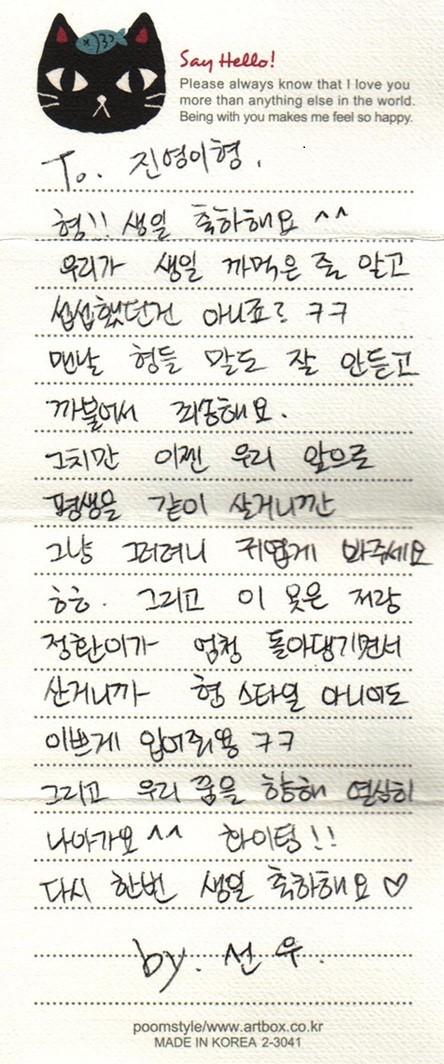 Say Hello!
Please always know that I love you
more than anything else in the world.
Being with you makes me feel so happy.
To. 진영이형.
형!! 생일 축하해요 ^^
우리가 생일 까먹은 줄 알고
섭섭했던건 아니죠? ㅋㅋ
맨날 형들 말도 잘 안듣고
까불어서 죄송해요.
그치만 이젠 우리 앞으로
평생을 같이 살거니깐
그냥 그러려니 귀엽게 봐주세요
흐흐. 그리고 이 옷은 저랑
정환이가 엄청 돌아댕기면서
산거니까 형 스타일 아니여도
이쁘게 입어줘용 ㅋㅋ
그리고 우리 꿈을 향해 열심히
나아가요 ^^ 화이팅!!
다시 한번 생일 축하해요 ♡
by. 선우.
poomstyle/www.artbox.co.kr
MADE IN KOREA 2-3041